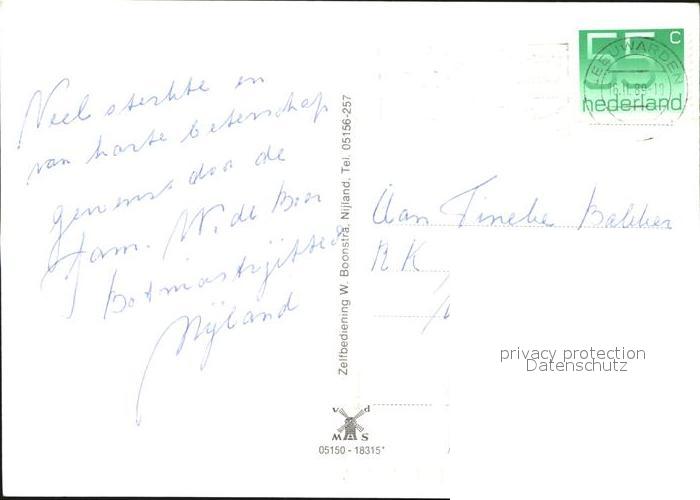 Veel sterkte en
van harte beterschap
gewenst door de
fam. W. de Boer
Nijland
Zelfbediening W. Boonstra, Nijland, Tel. 05156-257
v d
MAS
05150 - 18315*
55 c
nederland
LEEUWARDEN
Aan Tineke Bakker
RK
privacy protection
Datenschutz